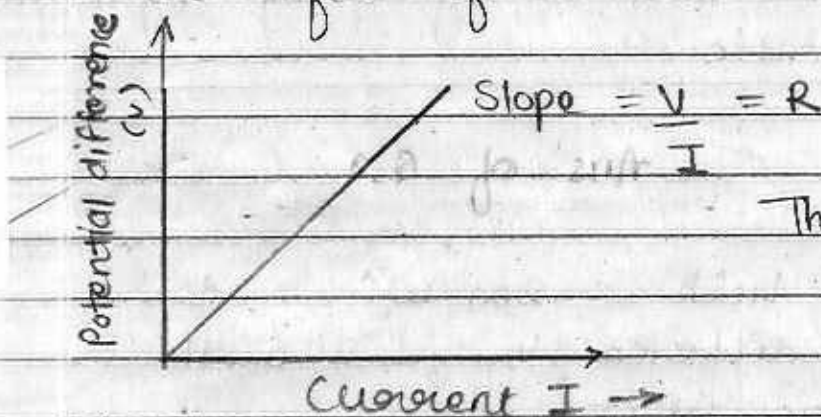 Potential difference
(V)
Slope = V = R
I
Th
Current I →